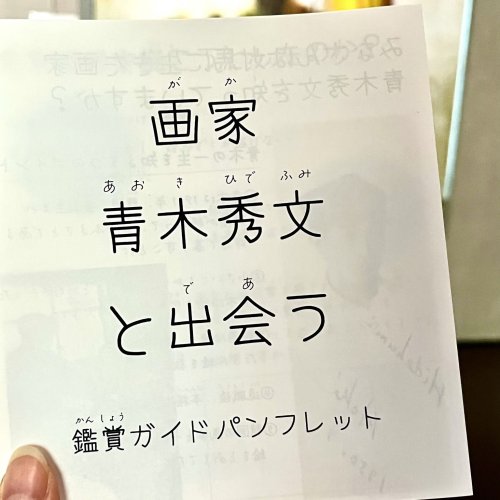 がか
画家
あおき ひでふみ
青木秀文
であ
と出会う
かんしょう
鑑賞ガイドパンフレット